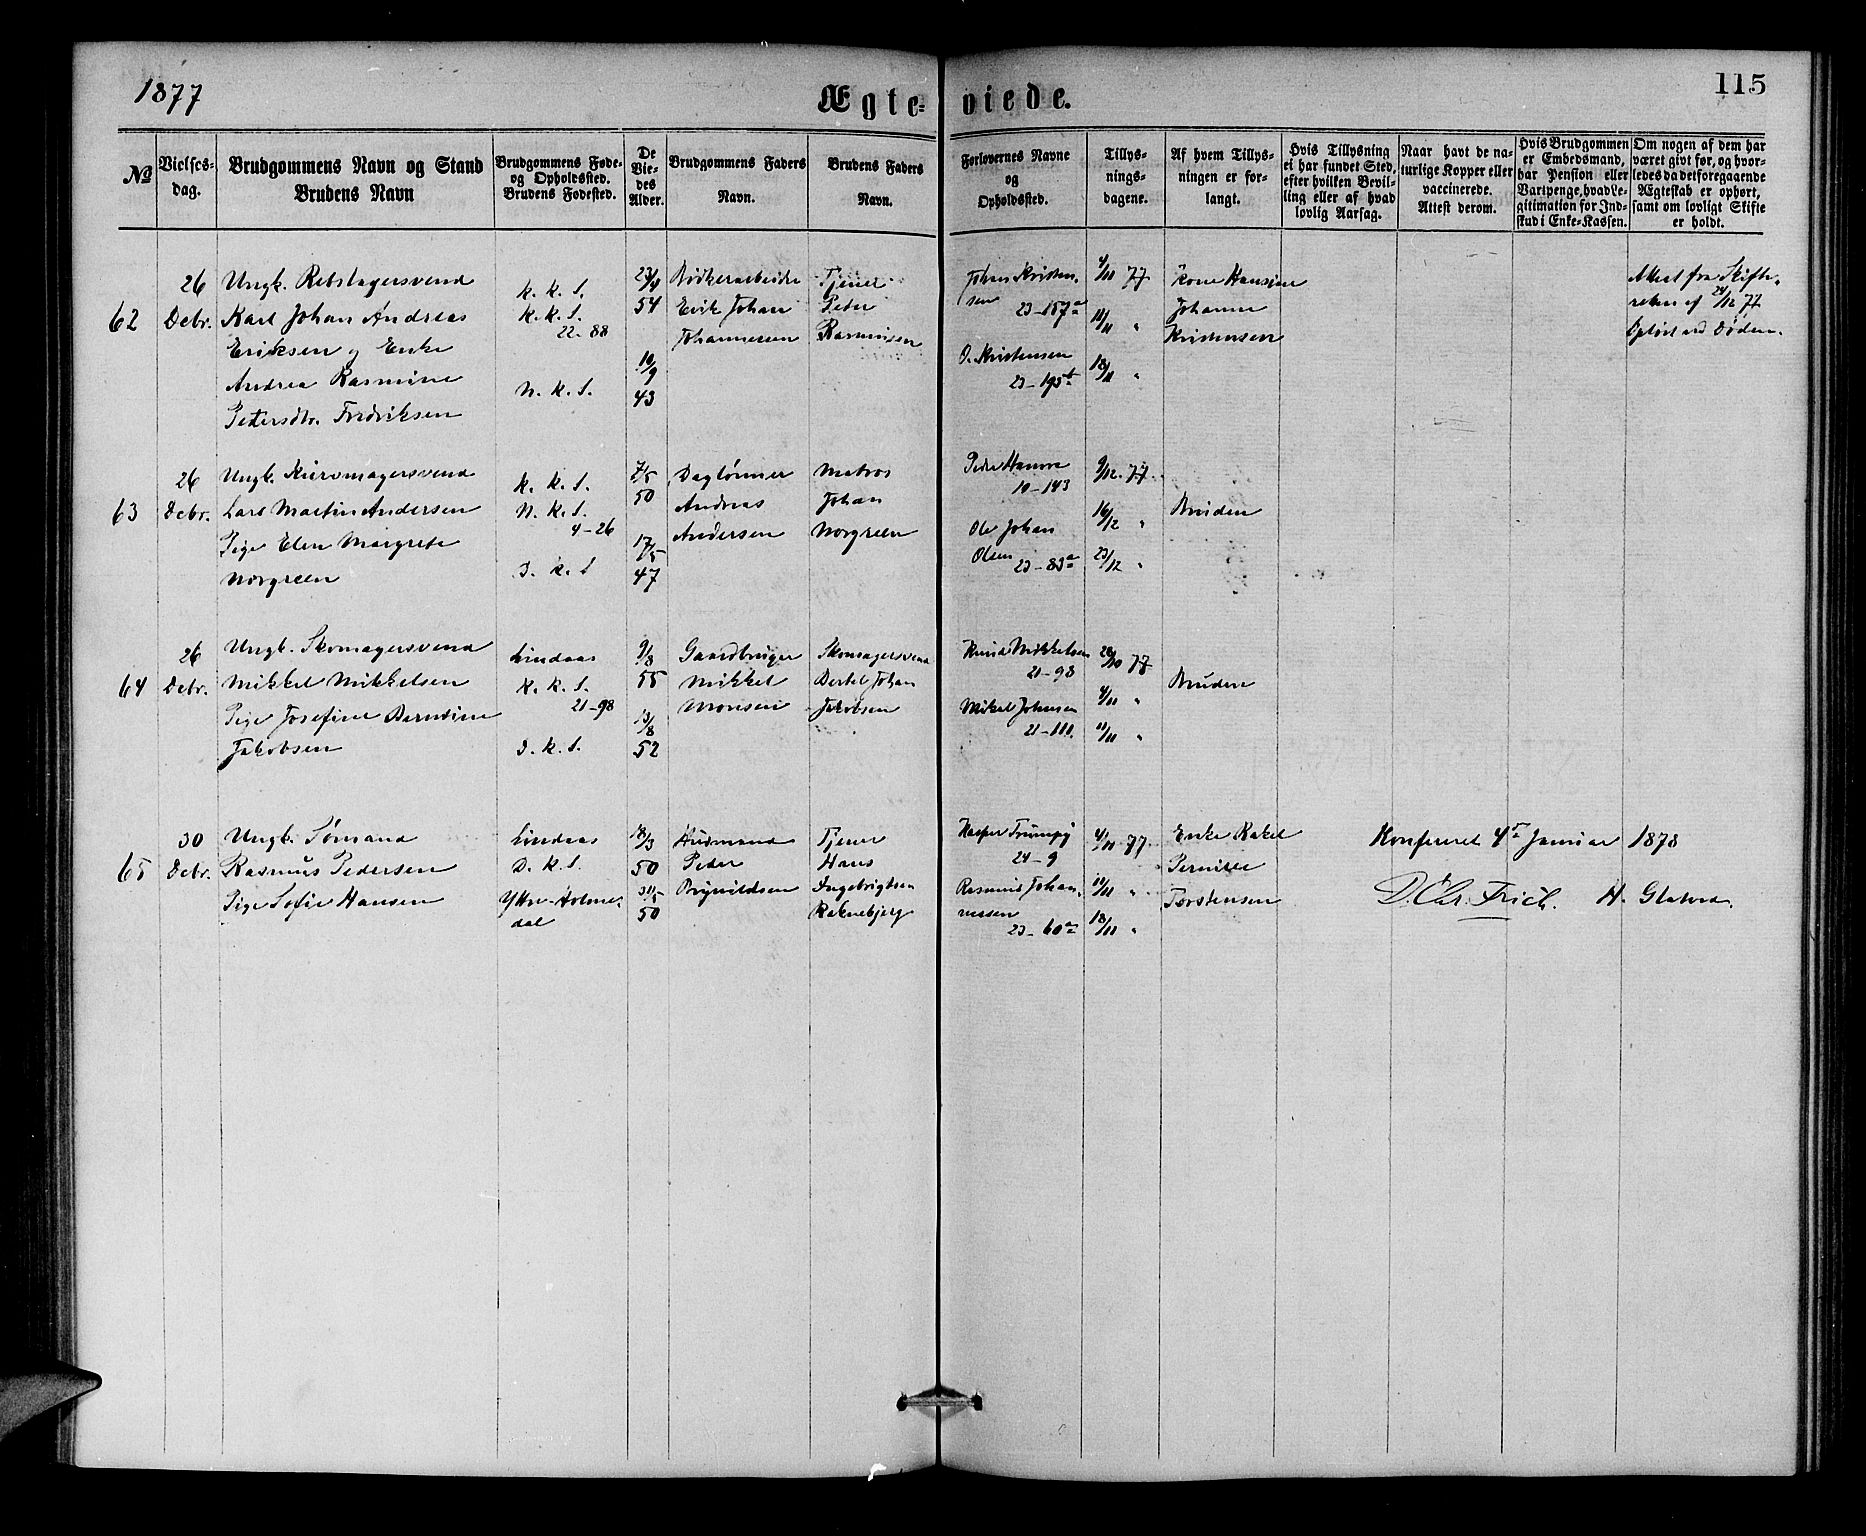 1877
Ægte-viede.
115
№
Vielses-
dag.
Brudgommens Navn og Stand
Brudens Navn
Brudgommens Føde-
og Opholdssted.
Brudens Fødested.
De
Vie-
des
Alder.
Brudgommens Faders
Navn.
Brudens Faders
Navn.
Forlovernes Navne
og
Opholdssted.
Tillys-
nings-
dagene.
Af hvem Tillys-
ningen er for-
langt.
Hvis Tillysning
ei har fundet Sted,
efter hvilken Bevil-
ling eller af hvad
lovlig Aarsag.
Naar havt de na-
turlige Kopper eller
vaccinerede.
Attest derom.
Hvis Brudgommen
er Embedsmand,
har Pension eller
Vartpenge, hvad Le-
gitimation for Ind-
skud i Enke-Kassen.
Om nogen af dem har
været givt før, og hvor-
ledes da det foregaaende
Ægteskab er ophørt,
samt om lovligt Skifte
er holdt.
62
26
Debr.
Ungk. Rebslagersvend
Karl Johan Andreas
Eriksen og Enke
Andrea Rasmine
Petersdtr. Fredriksen
K. K. S.
K. K. S.
22-88
N. K. S.
23/4
54
10/9
43
Bødkerarbeider
Erik Johan
Johannesen
Tjener
Peder
Rasmusen
Johan Kristen-
sen
23-157a
O. Kristensen
23-195b
4/11 77
11/11 "
18/11 "
Kone Hansine
Johanne
Kristensen
Attest fra Skifte-
retten af 24/12 77
Opløst ved Døden.
63
26
Debr.
Ungk. Kurvmagersvend
Lars Martin Andersen
Pige Elen Margrete
Norgreen
K. K. S.
N. K. S.
4-26
D. K. S
7/5
50
17/5
47
Daglønner
Andreas
Andersen
Matros
Johan
Norgreen
Peder Hansen
10-143
Ole Johan
Olsen
23-83a
9/12 77
16/12 "
23/12 "
Bruden
64
26
Debr.
Ungk. Skomagersvend
Mikkel Mikkelsen
Pige Josefine Berndine
Jakobsen
Lindaas
K. K. S.
21-98
D. K. S.
9/8
55
13/8
52
Gaardbruger
Mikkel
Monsen
Skomagersvend
Bertel Johan
Jakobsen
Knud Mikkelsen
21-98
Mikel Johnsen
21-111.
28/10 77
4/11 "
11/11 "
Bruden
65
30
Debr.
Ungk. Sømand
Rasmus Pedersen
Pige Sofie Hansen
Lindaas
D. K. S.
Ytre-Holme-
dal
18/3
50
31/5
50
Husmand
Peder
Brynildsen
Tjener
Hans
Ingebrigtsen
Raknebjerg
Kasper Trumpy
24-9
Rasmus Johan-
nessen
23-60a
4/11 77
11/11 "
18/11 "
Enke Rakel
Pernille
Torstensen
Konfereret 4de Januar 1878
D. Chr. Frich. H. Glatved.